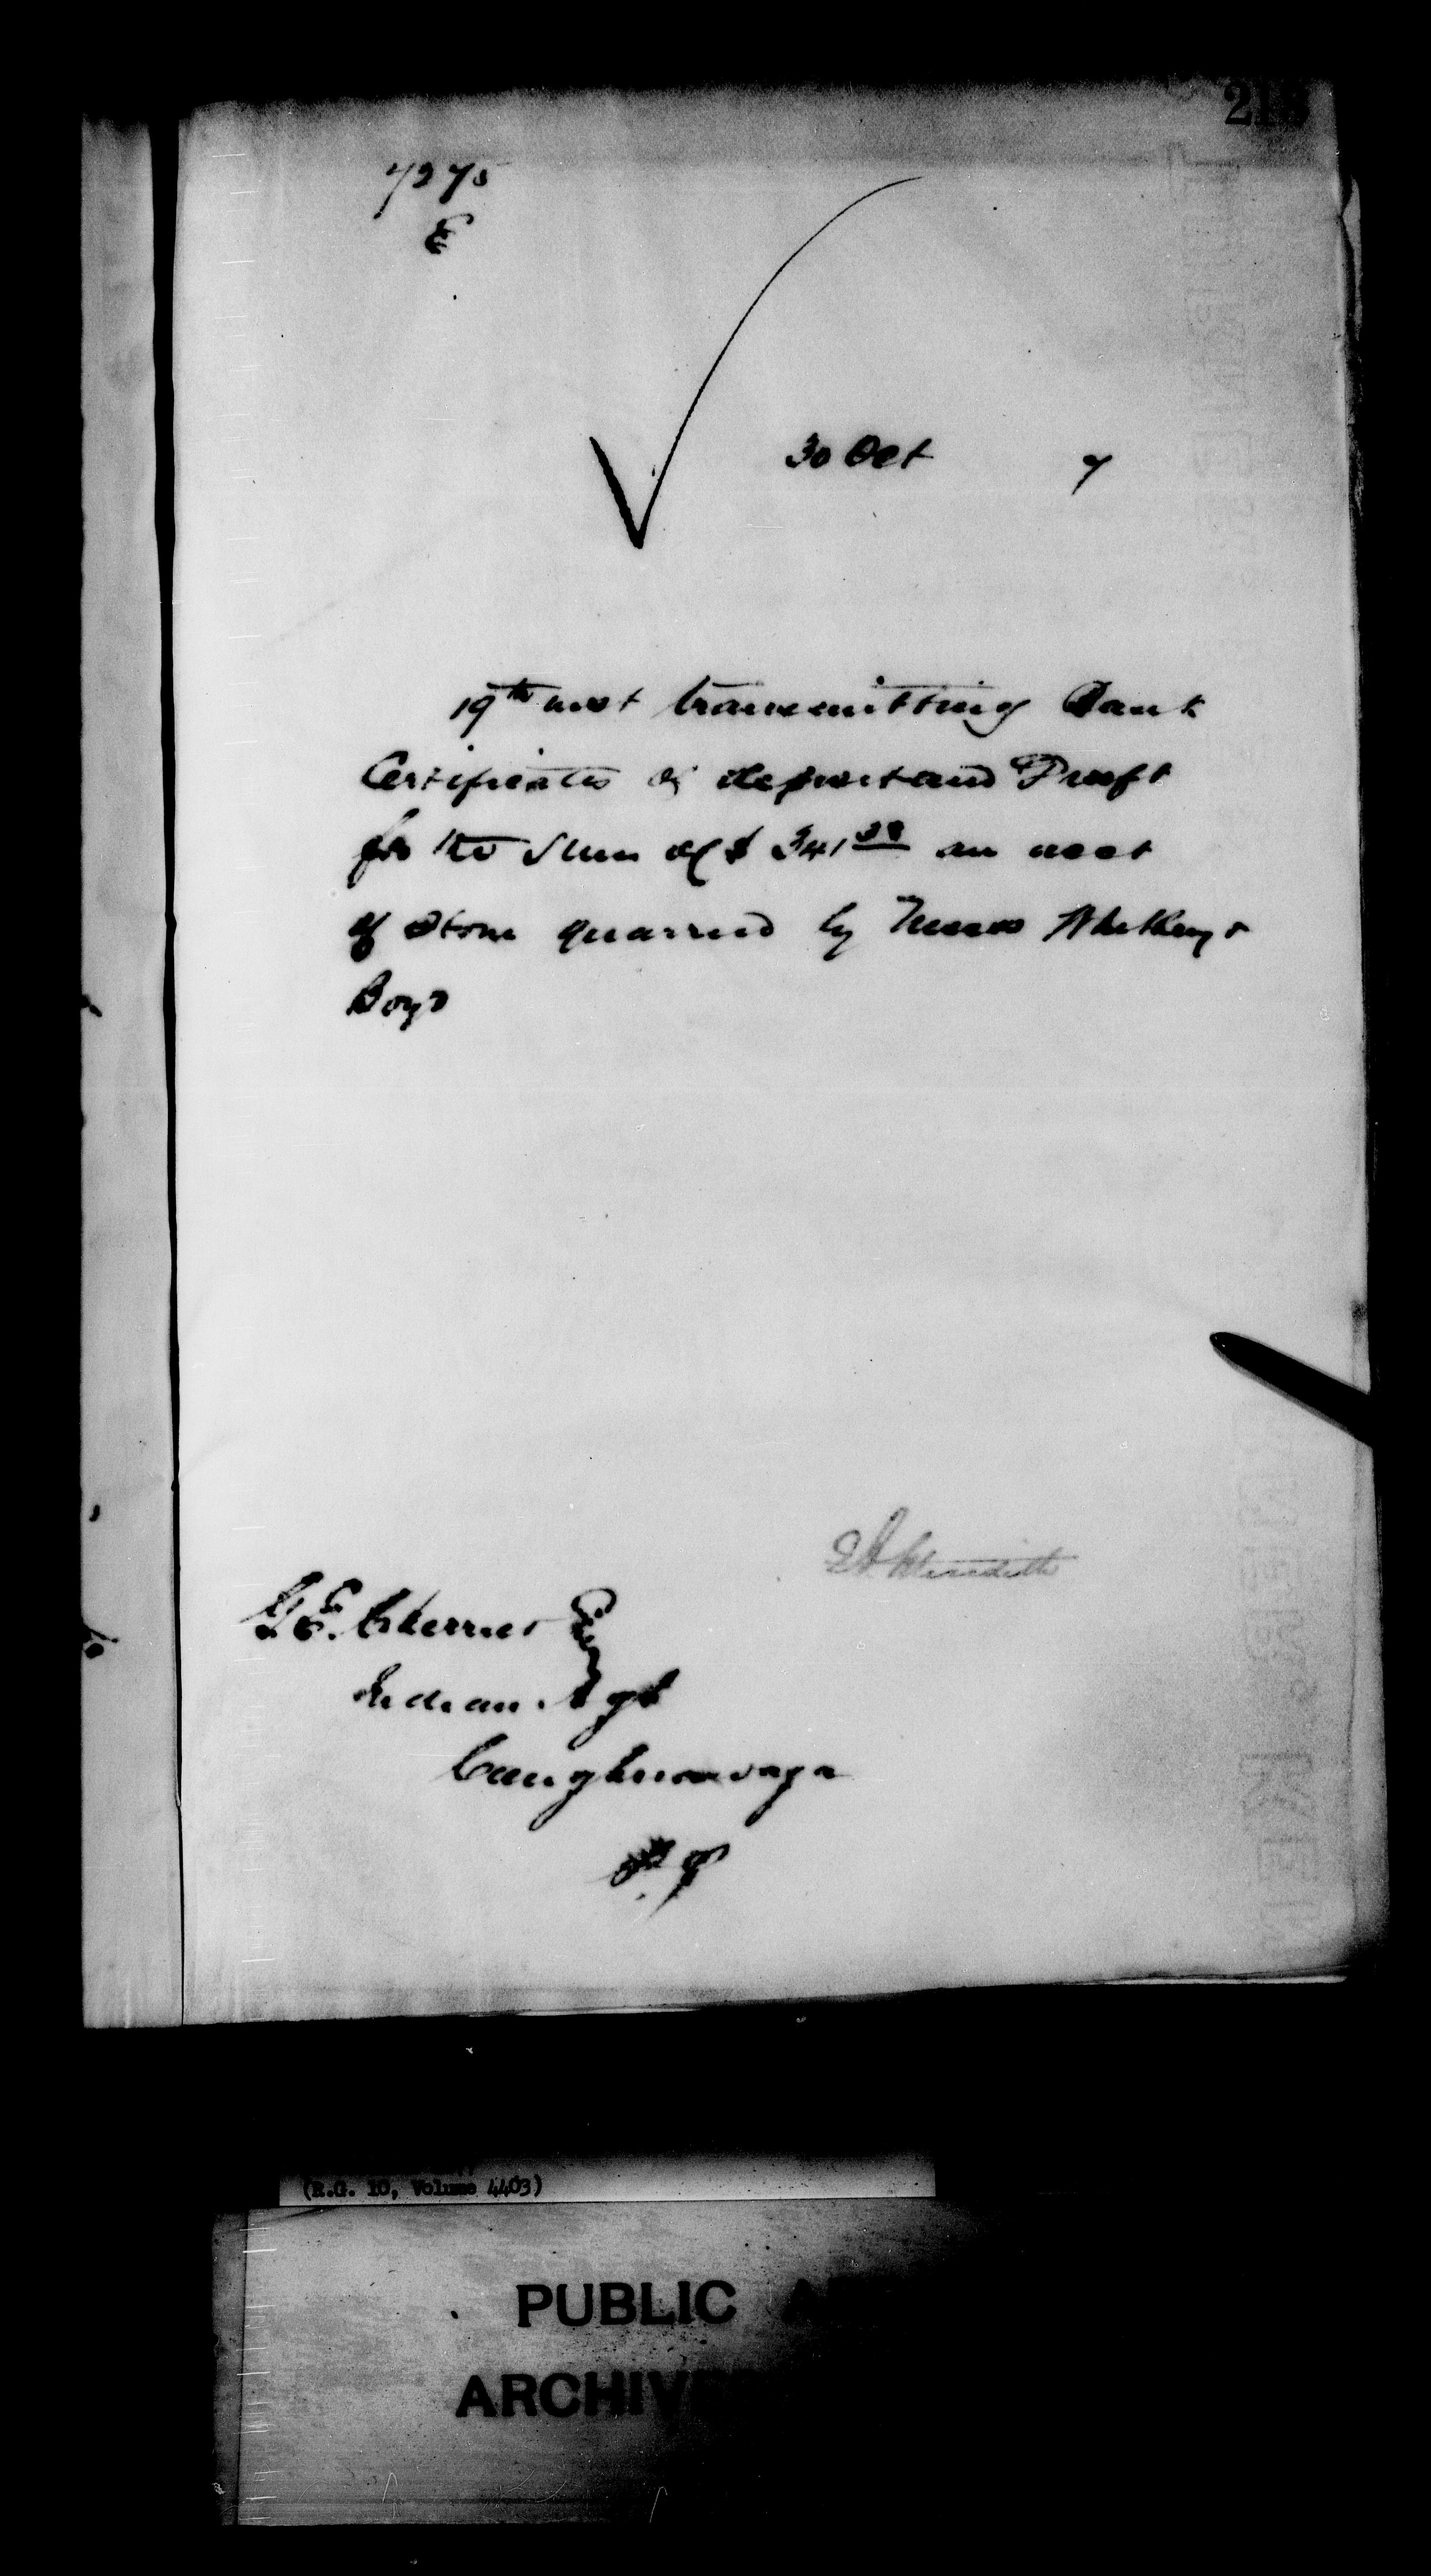 7275
E
30 Oct 7
19th inst transmitting Bank
Certificates of deposit and Draft
for the Sum of $ 341 38 on acct
of stone quarried by Messrs
Boyd
G E. Cherrier Esq
Indian Agt
Caughnawaga
P Q
(R.G. 10, Volume 4403)
PUBLIC
ARCHIVES